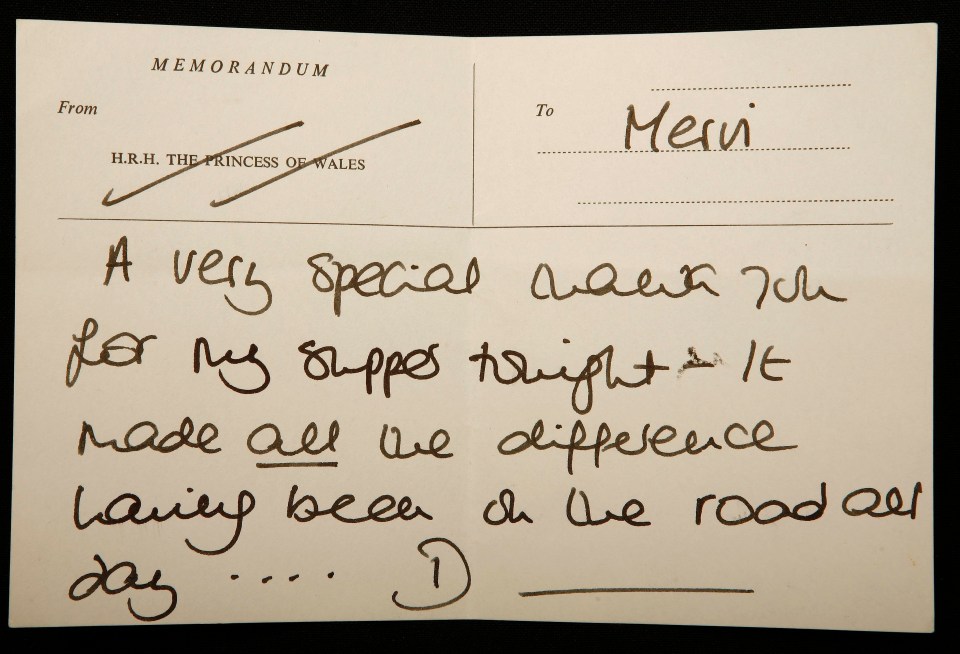 MEMORANDUM
From
To
Mervi
H.R.H. THE PRINCESS OF WALES
A very special thank you
for my supper tonight - It
made all the difference
having been on the road all
day .... D